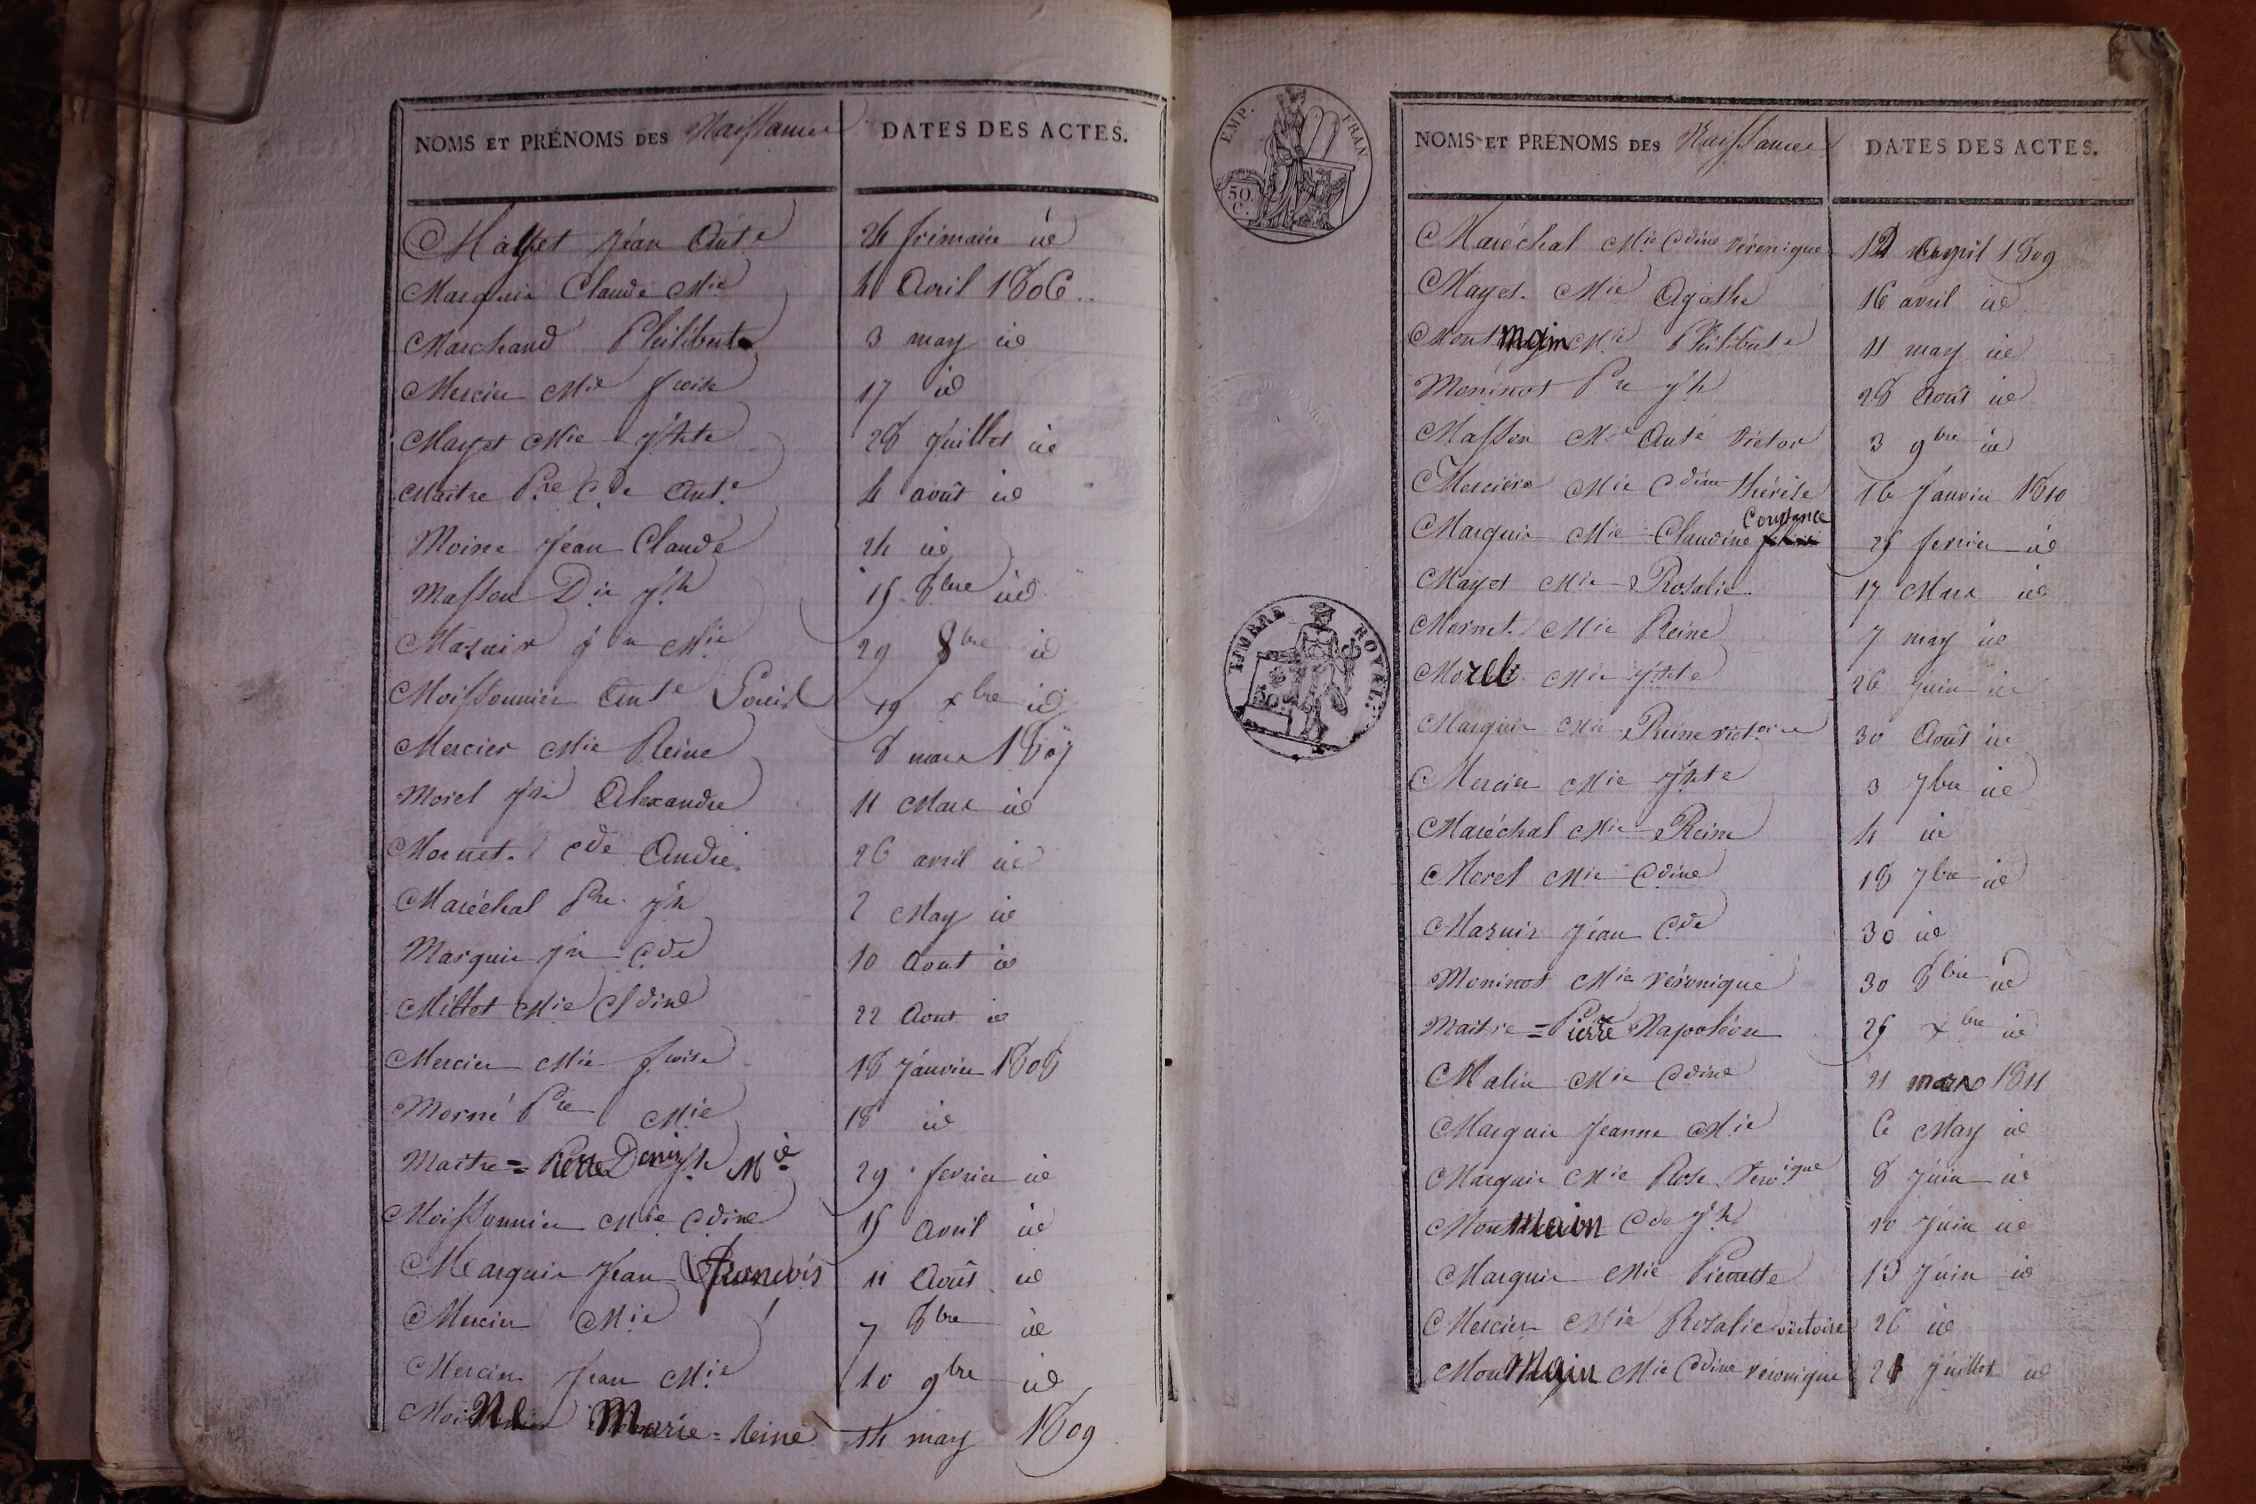 NOMS ET PRÉNOMS DES Naissances DATES DES ACTES.
Mayet Jean Ante 24 frimaire id
Marquis Claude Mie 4 Avril 1806
Marchand Philiberte 3 may id
Mercier Mie fcoise 17 id
Mayet Mie Jphte 28 Juillet id
Maitre Pre Cde Ante 4 août id
Moine Jean Claude 24 id
Masson Dis Jph 15 8bre id
Mazuir Mie 29 8bre id
Moissonnier Ante Louis 19 xbre id
Mercier Mie Reine 8 mars 1807
Morel Jph Alexandre 11 Mars id
Mornet Cde André 26 avril id
Maréchal Pre Jph 2 May id
Marquis Jn Cde 10 Aout id
Millot Mie Cdine 22 Aout id
Mercier Mie fcoise 18 Janvier 1808
Morné Pre Mie 18 id
Maitre = Pierre Denis Jh Mie 29 fevrier id
Moissonnier Mie Cdine 15 Avril id
Marquis Jean François 11 Août id
Mercier Mie 7 8bre id
Mercier Jean Mie 10 9bre id
Marie = Reine 14 may 1809
EMP. FRAN
50. C.
TIMBRE ROYAL
NOMS ET PRENOMS DES Naissances DATES DES ACTES.
Maréchal Mie Cdine Véronique 12 Avril 1809
Mayet Mie Agathe 16 avril id
Montmain Mie Philiberte 11 may id
Moninot Pre Jph 28 Août id
Masson Mie Ante Victor 3 9bre id
Mercière Mie Cdine Thérèse 16 Janvier 1810
Constance
Marquis Mie Claudine 25 fevrier id
Mayet Mie Rosalie 17 Mars id
Mornet Mie Reine 7 may id
Morel Mie Jphte 26 Juin id
Marquis Mie Reine victoire 30 Août id
Mercier Mie Jphte 3 7bre id
Maréchal Mie Reine 4 id
Morel Mie Cdine 18 7bre id
Mazuir Jean Cde 30 id
Moninot Mie véronique 30 8bre id
Maitre = Pierre Napoléon 25 xbre id
Malin Mie Cdine 21 mars 1811
Marquis Jeanne Mie 6 May id
Marquis Mie Rose Véronique 8 Juin id
Montmain Cde Jph 10 Juin id
Marquis Mie Pierrette 13 Juin id
Mercier Mie Rosalie victoire 26 id
Montmain Mie Cdine véronique 21 Juillet id